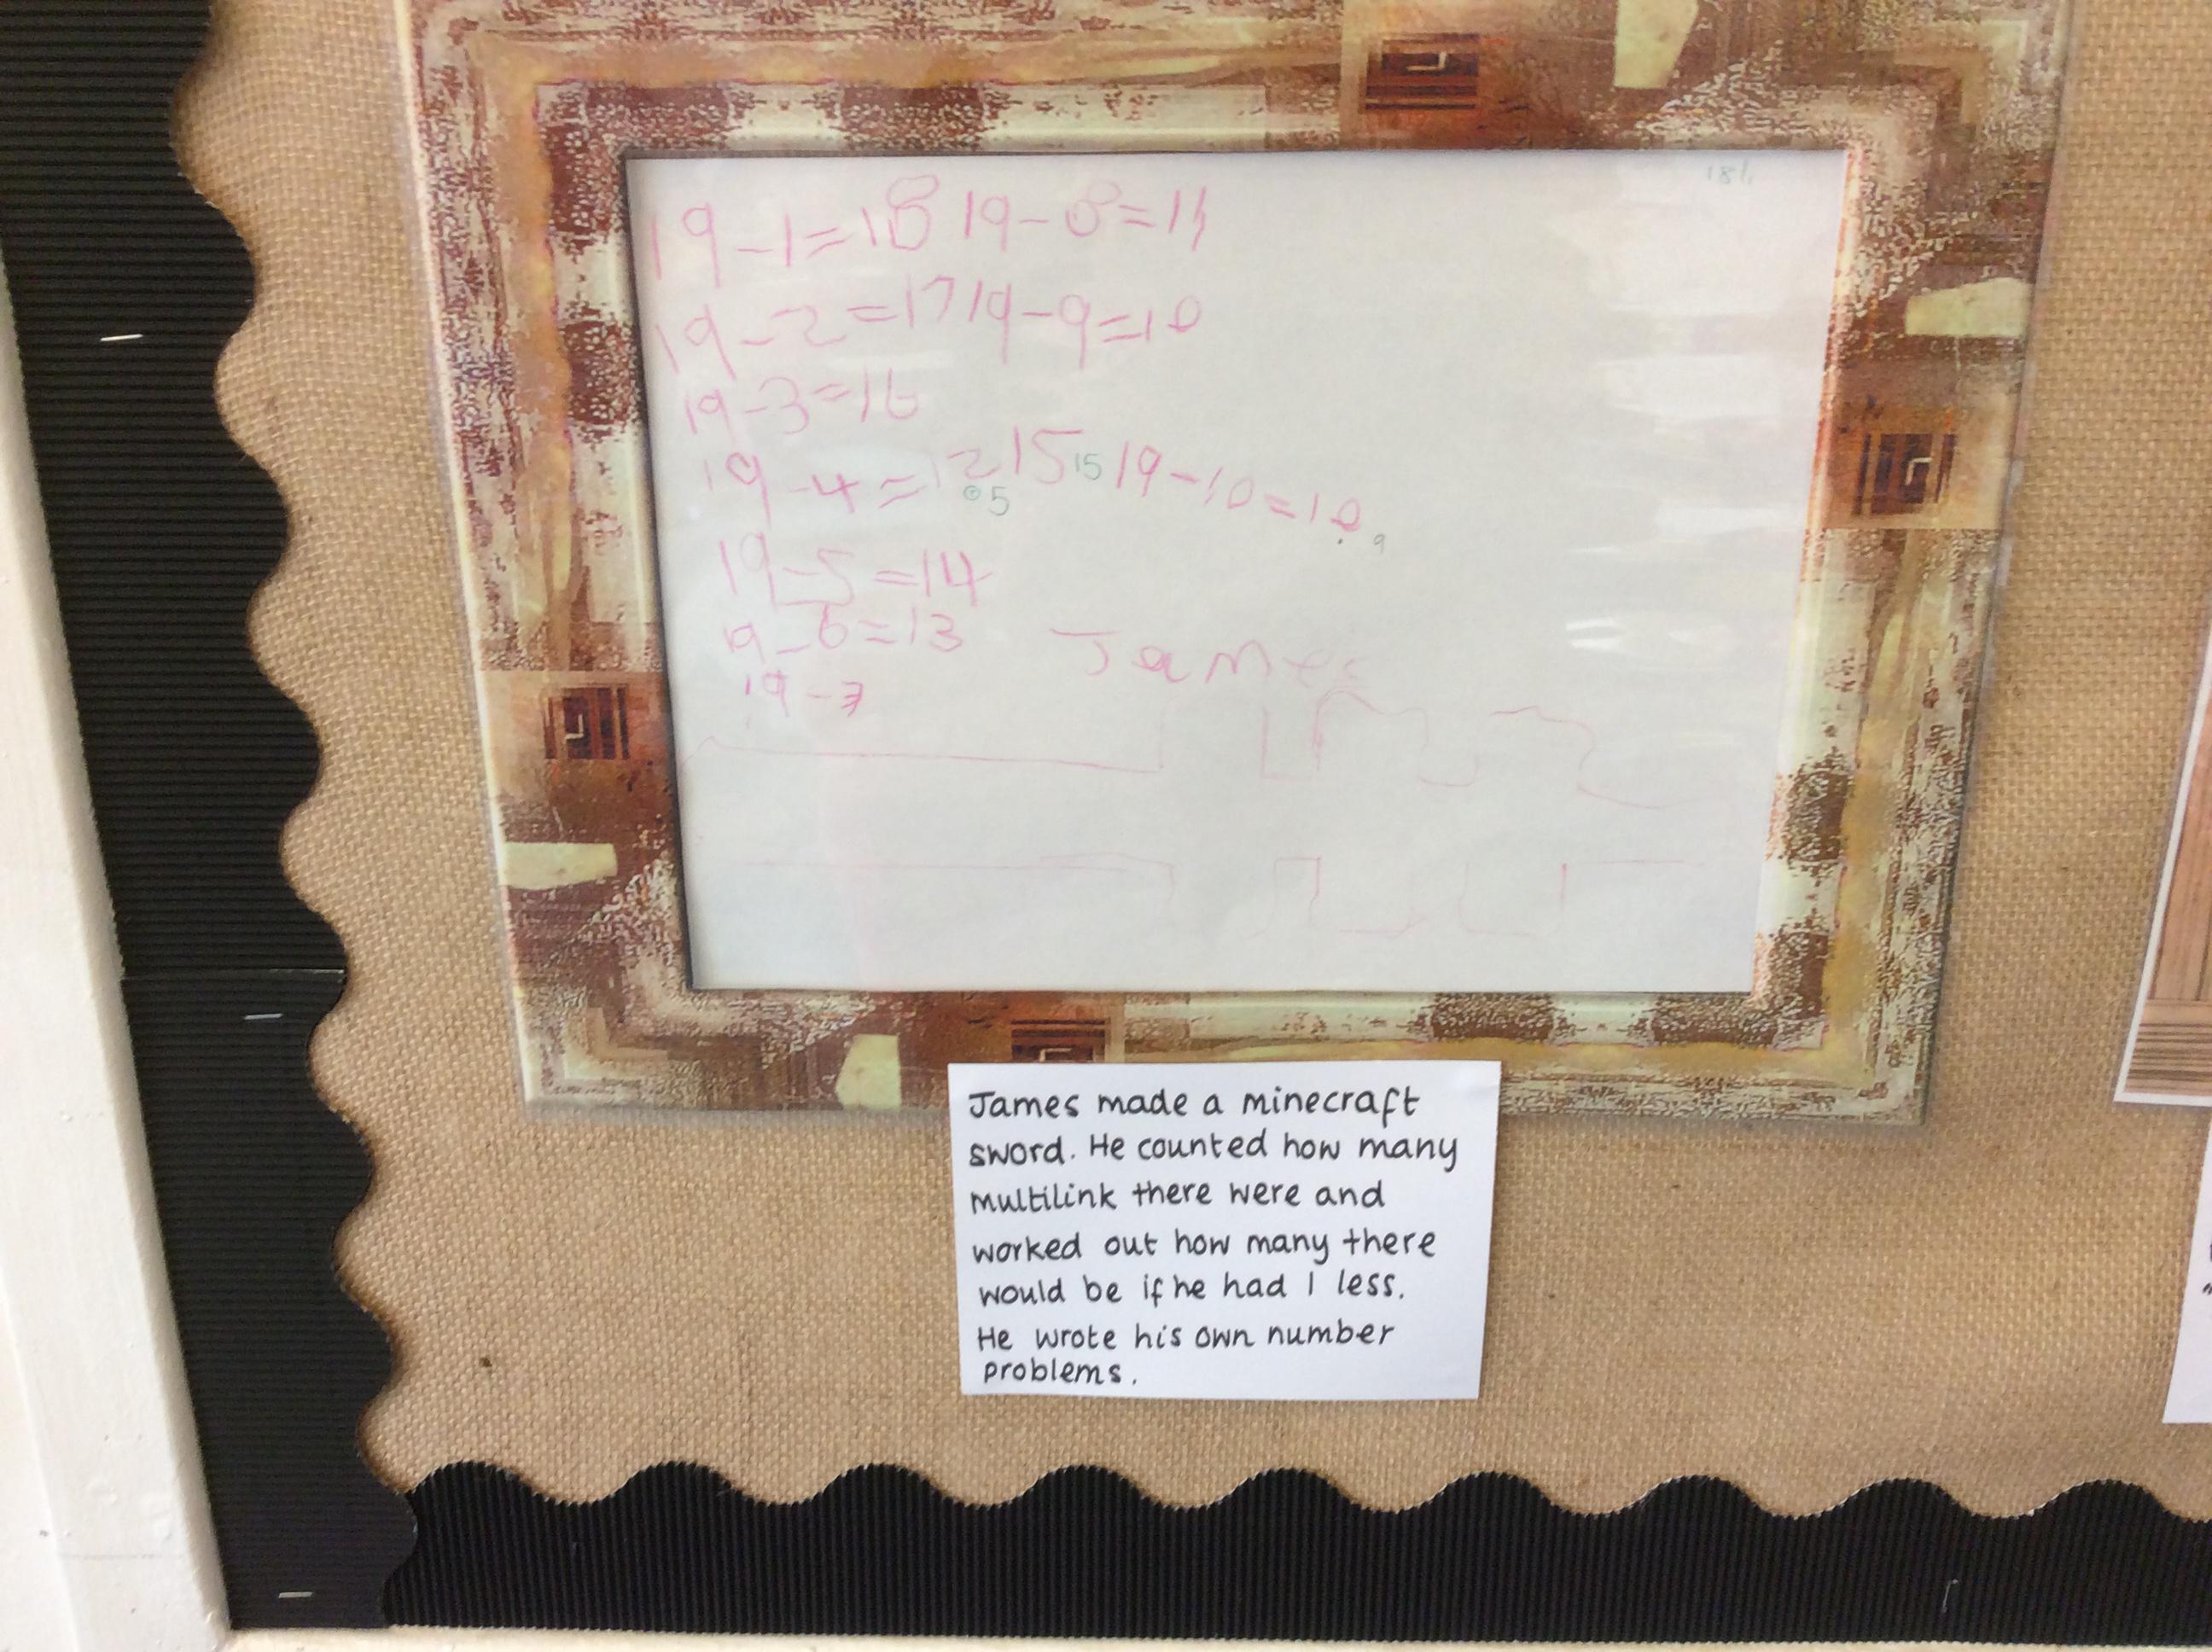 181.
19-1=18 19-8=11
19-2=17 19-9=10
19-3=16
19-4=12 15 15 19-10=10. 9
5
19-5=14
19-6=13
James
19-7
James made a minecraft
sword. He counted how many
multilink there were and
worked out how many there
would be if he had 1 less.
He wrote his own number
problems.